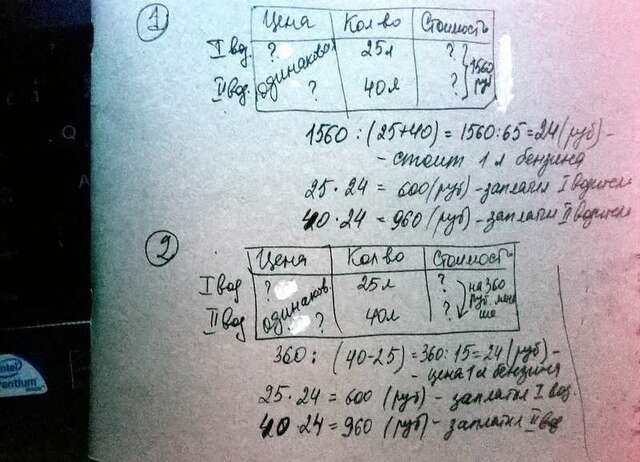 1
Цена Кол во Стоимость
I вод. ? одинакова 25л ? 1560 руб
II вод. ? 40л ?
1560 : (25+40) = 1560:65=24(руб)-
- стоит 1 л бензина
25 · 24 = 600(руб) - заплатил I водитель
40 · 24 = 960 (руб) - заплатил II водитель
2
Цена Кол во Стоимость
I вод ? одинаков 25л ? на 360 руб мень
II вод ? 40л ? ше
360 : (40-25) = 360:15=24(руб)-
- цена 1 л бензина
25 · 24 = 600 (руб) - заплатил I вод.
40 · 24 = 960 (руб) - заплатил II вод
intel
Pentium
Q
A